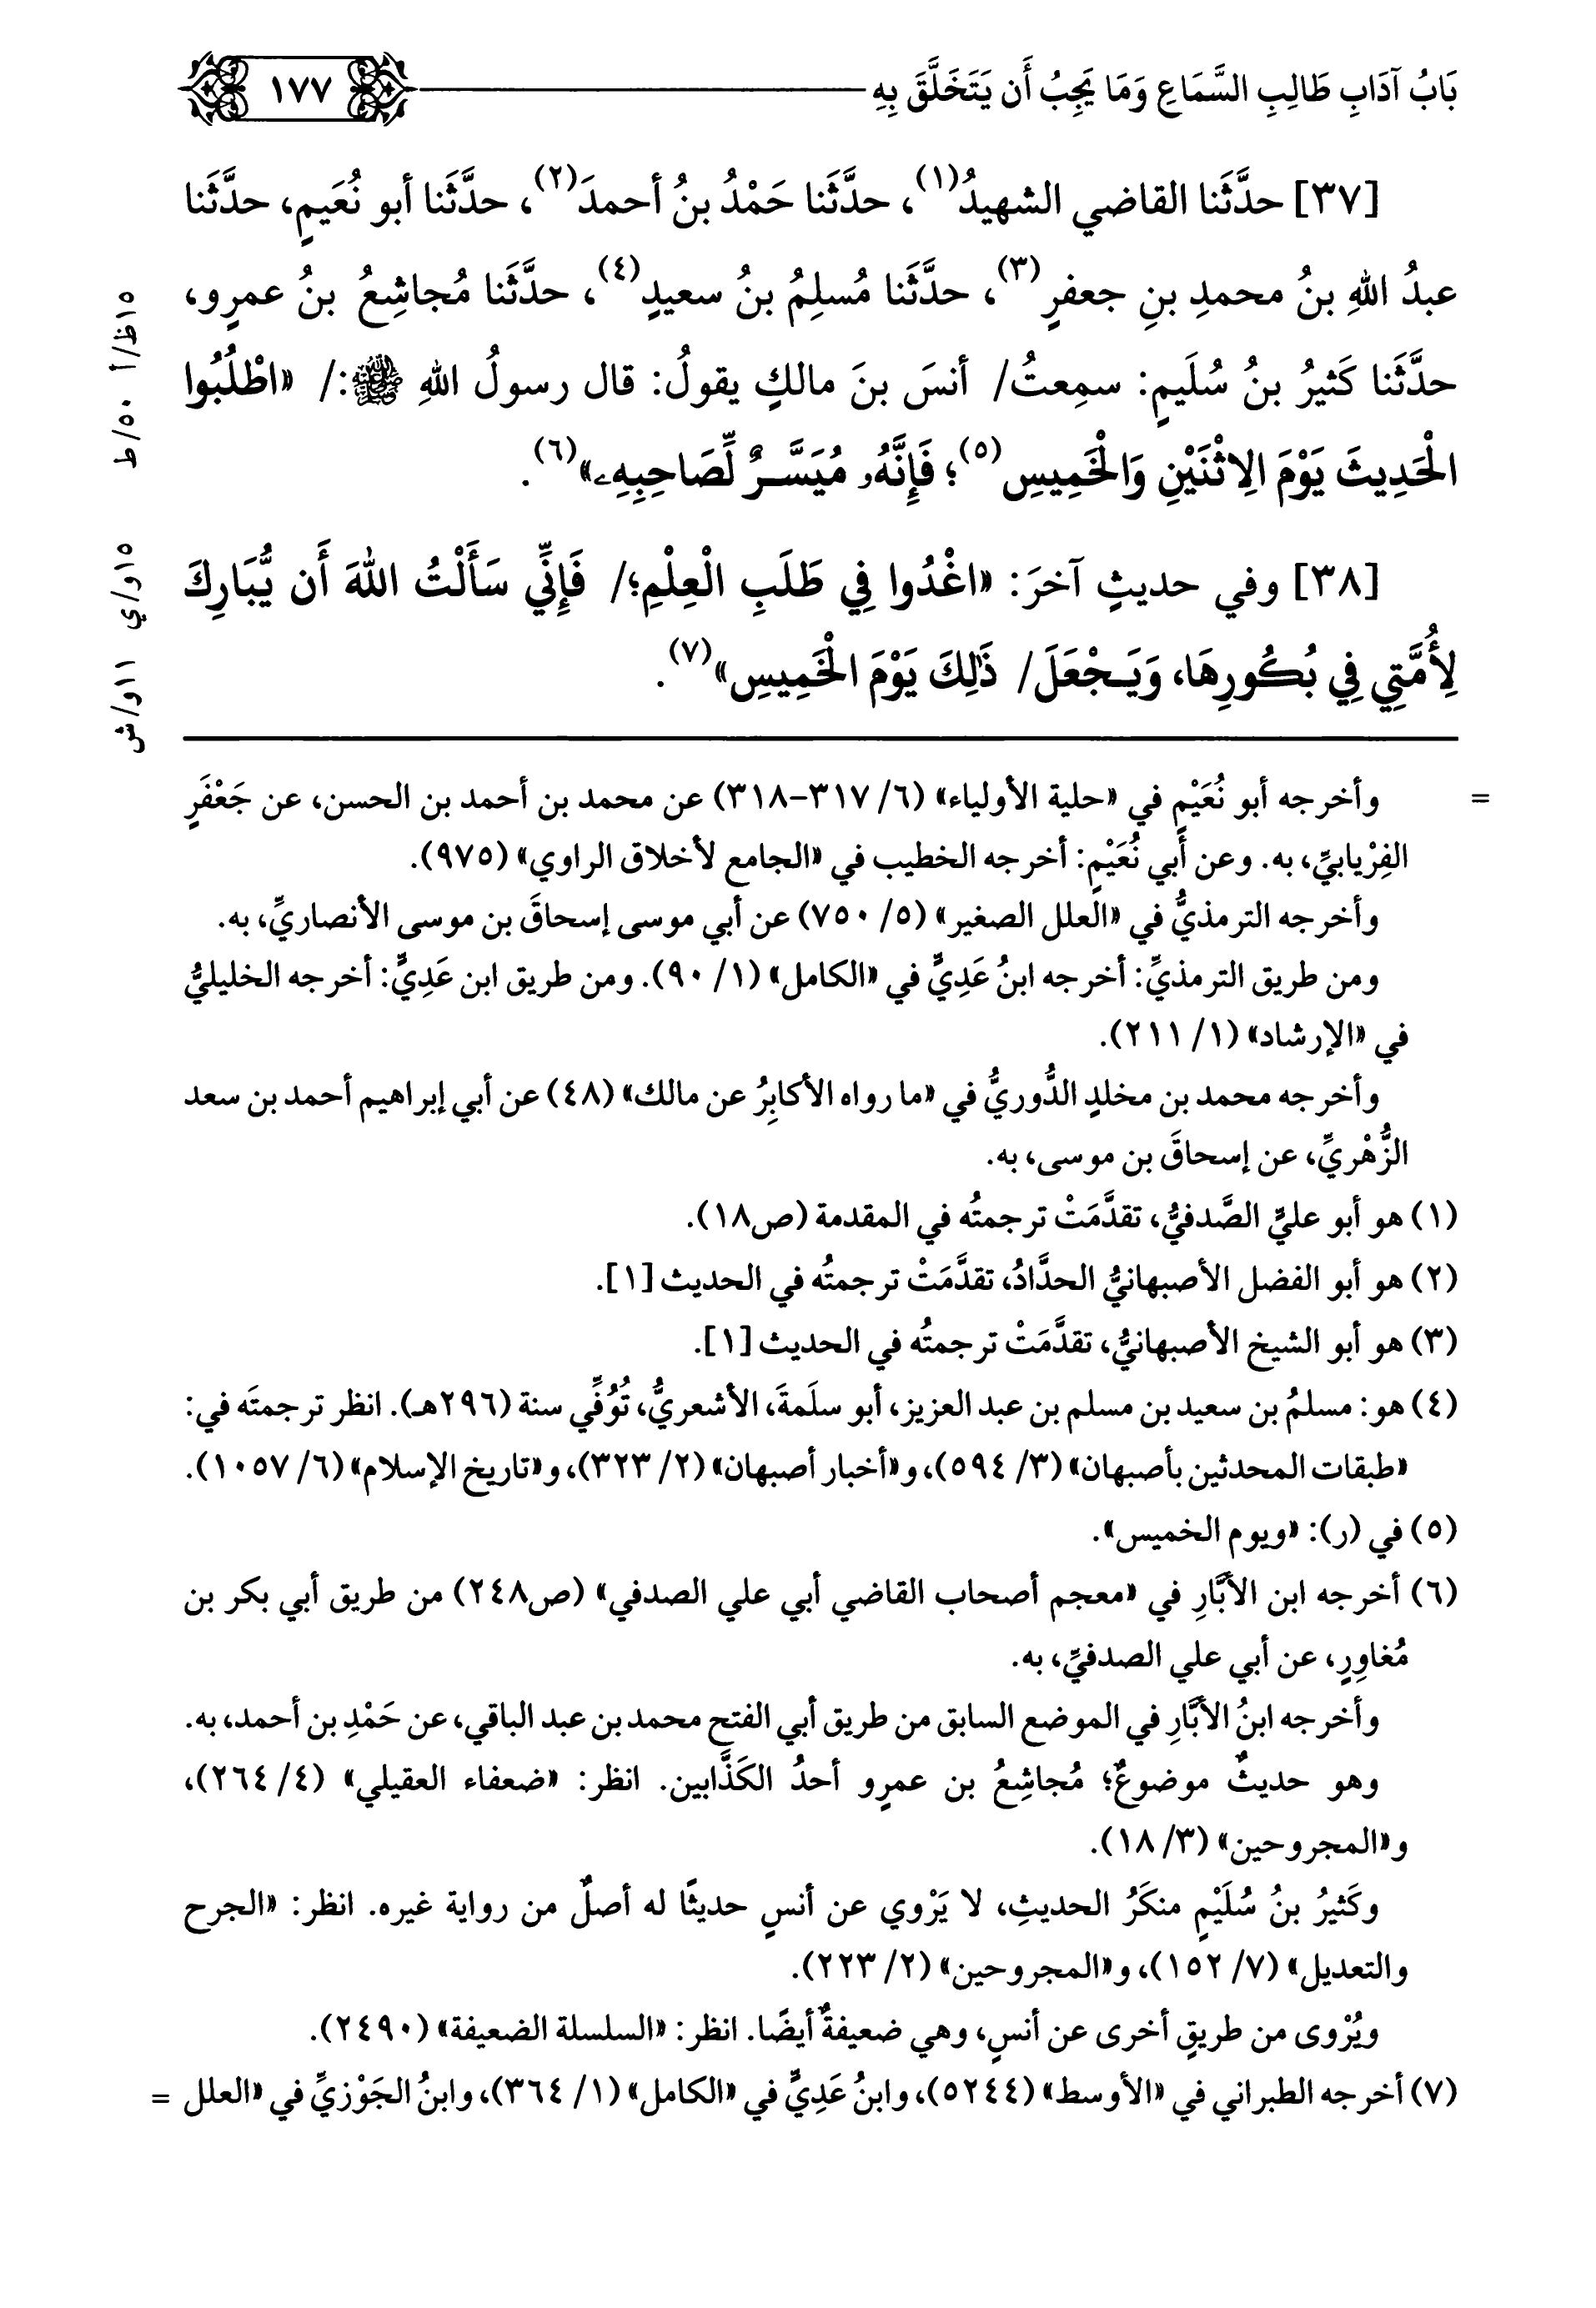 بَابُ آدَابِ طَالِبِ السَّمَاعِ وَمَا يَجِبُ أَن يَتَخَلَّقَ بِهِ ١٧٧
[٣٧] حدَّثَنا القاضي الشهيدُ(١)، حدَّثَنا حَمْدُ بنُ أحمدَ(٢)، حدَّثَنا أبو نُعَيمٍ، حدَّثَنا
عبدُ اللهِ بنُ محمدِ بنِ جعفرٍ(٣)، حدَّثَنا مُسلِمُ بنُ سعيدٍ(٤)، حدَّثَنا مُجاشِعُ بنُ عمرٍو،
حدَّثَنا كَثيرُ بنُ سُلَيمٍ: سمِعتُ/ أنسَ بنَ مالكٍ يقولُ: قال رسولُ اللهِ ﷺ:/ «اطْلُبُوا
الْحَدِيثَ يَوْمَ الِاثْنَيْنِ وَالْخَمِيسِ(٥)؛ فَإِنَّهُۥ مُيَسَّرٌ لِّصَاحِبِهِۦ»(٦).
[٣٨] وفي حديثٍ آخرَ: «اغْدُوا فِي طَلَبِ الْعِلْمِ؛/ فَإِنِّي سَأَلْتُ اللهَ أَن يُّبَارِكَ
لِأُمَّتِي فِي بُكُورِهَا، وَيَجْعَلَ/ ذَٰلِكَ يَوْمَ الْخَمِيسِ»(٧).
١٥ظ/أ ٥٠/ط
١٥و/ي ١١و/ش
= وأخرجه أبو نُعَيْمٍ في «حلية الأولياء» (٦/ ٣١٧-٣١٨) عن محمد بن أحمد بن الحسن، عن جَعْفَرٍ
الفِرْيابيِّ، به. وعن أبي نُعَيْمٍ: أخرجه الخطيب في «الجامع لأخلاق الراوي» (٩٧٥).
وأخرجه الترمذيُّ في «العلل الصغير» (٥/ ٧٥٠) عن أبي موسى إسحاقَ بن موسى الأنصاريِّ، به.
ومن طريق الترمذيِّ: أخرجه ابنُ عَدِيٍّ في «الكامل» (١/ ٩٠). ومن طريق ابن عَدِيٍّ: أخرجه الخليليُّ
في «الإرشاد» (١/ ٢١١).
وأخرجه محمد بن مخلدٍ الدُّوريُّ في «ما رواه الأكابِرُ عن مالك» (٤٨) عن أبي إبراهيم أحمد بن سعد
الزُّهْريِّ، عن إسحاقَ بن موسى، به.
(١) هو أبو عليٍّ الصَّدفيُّ، تقدَّمَتْ ترجمتُه في المقدمة (ص١٨).
(٢) هو أبو الفضل الأصبهانيُّ الحدَّادُ، تقدَّمَتْ ترجمتُه في الحديث [١].
(٣) هو أبو الشيخ الأصبهانيُّ، تقدَّمَتْ ترجمتُه في الحديث [١].
(٤) هو: مسلمُ بن سعيد بن مسلم بن عبد العزيز، أبو سلَمةَ، الأشعريُّ، تُوُفِّي سنة (٢٩٦هـ). انظر ترجمتَه في:
«طبقات المحدثين بأصبهان» (٣/ ٥٩٤)، و«أخبار أصبهان» (٢/ ٣٢٣)، و«تاريخ الإسلام» (٦/ ١٠٥٧).
(٥) في (ر): «ويوم الخميس».
(٦) أخرجه ابن الأبَّارِ في «معجم أصحاب القاضي أبي علي الصدفي» (ص٢٤٨) من طريق أبي بكر بن
مُغاوِرٍ، عن أبي علي الصدفيِّ، به.
وأخرجه ابنُ الأبَّارِ في الموضع السابق من طريق أبي الفتح محمد بن عبد الباقي، عن حَمْدِ بن أحمد، به.
وهو حديثٌ موضوعٌ؛ مُجاشِعُ بن عمرٍو أحدُ الكَذَّابين. انظر: «ضعفاء العقيلي» (٤/ ٢٦٤)،
و«المجروحين» (٣/ ١٨).
وكَثيرُ بنُ سُلَيْمٍ منكَرُ الحديثِ، لا يَرْوي عن أنسٍ حديثًا له أصلٌ من رواية غيره. انظر: «الجرح
والتعديل» (٧/ ١٥٢)، و«المجروحين» (٢/ ٢٢٣).
ويُرْوى من طريقٍ أخرى عن أنسٍ، وهي ضعيفةٌ أيضًا. انظر: «السلسلة الضعيفة» (٢٤٩٠).
(٧) أخرجه الطبراني في «الأوسط» (٥٢٤٤)، وابنُ عَدِيٍّ في «الكامل» (١/ ٣٦٤)، وابنُ الجَوْزيِّ في «العلل =